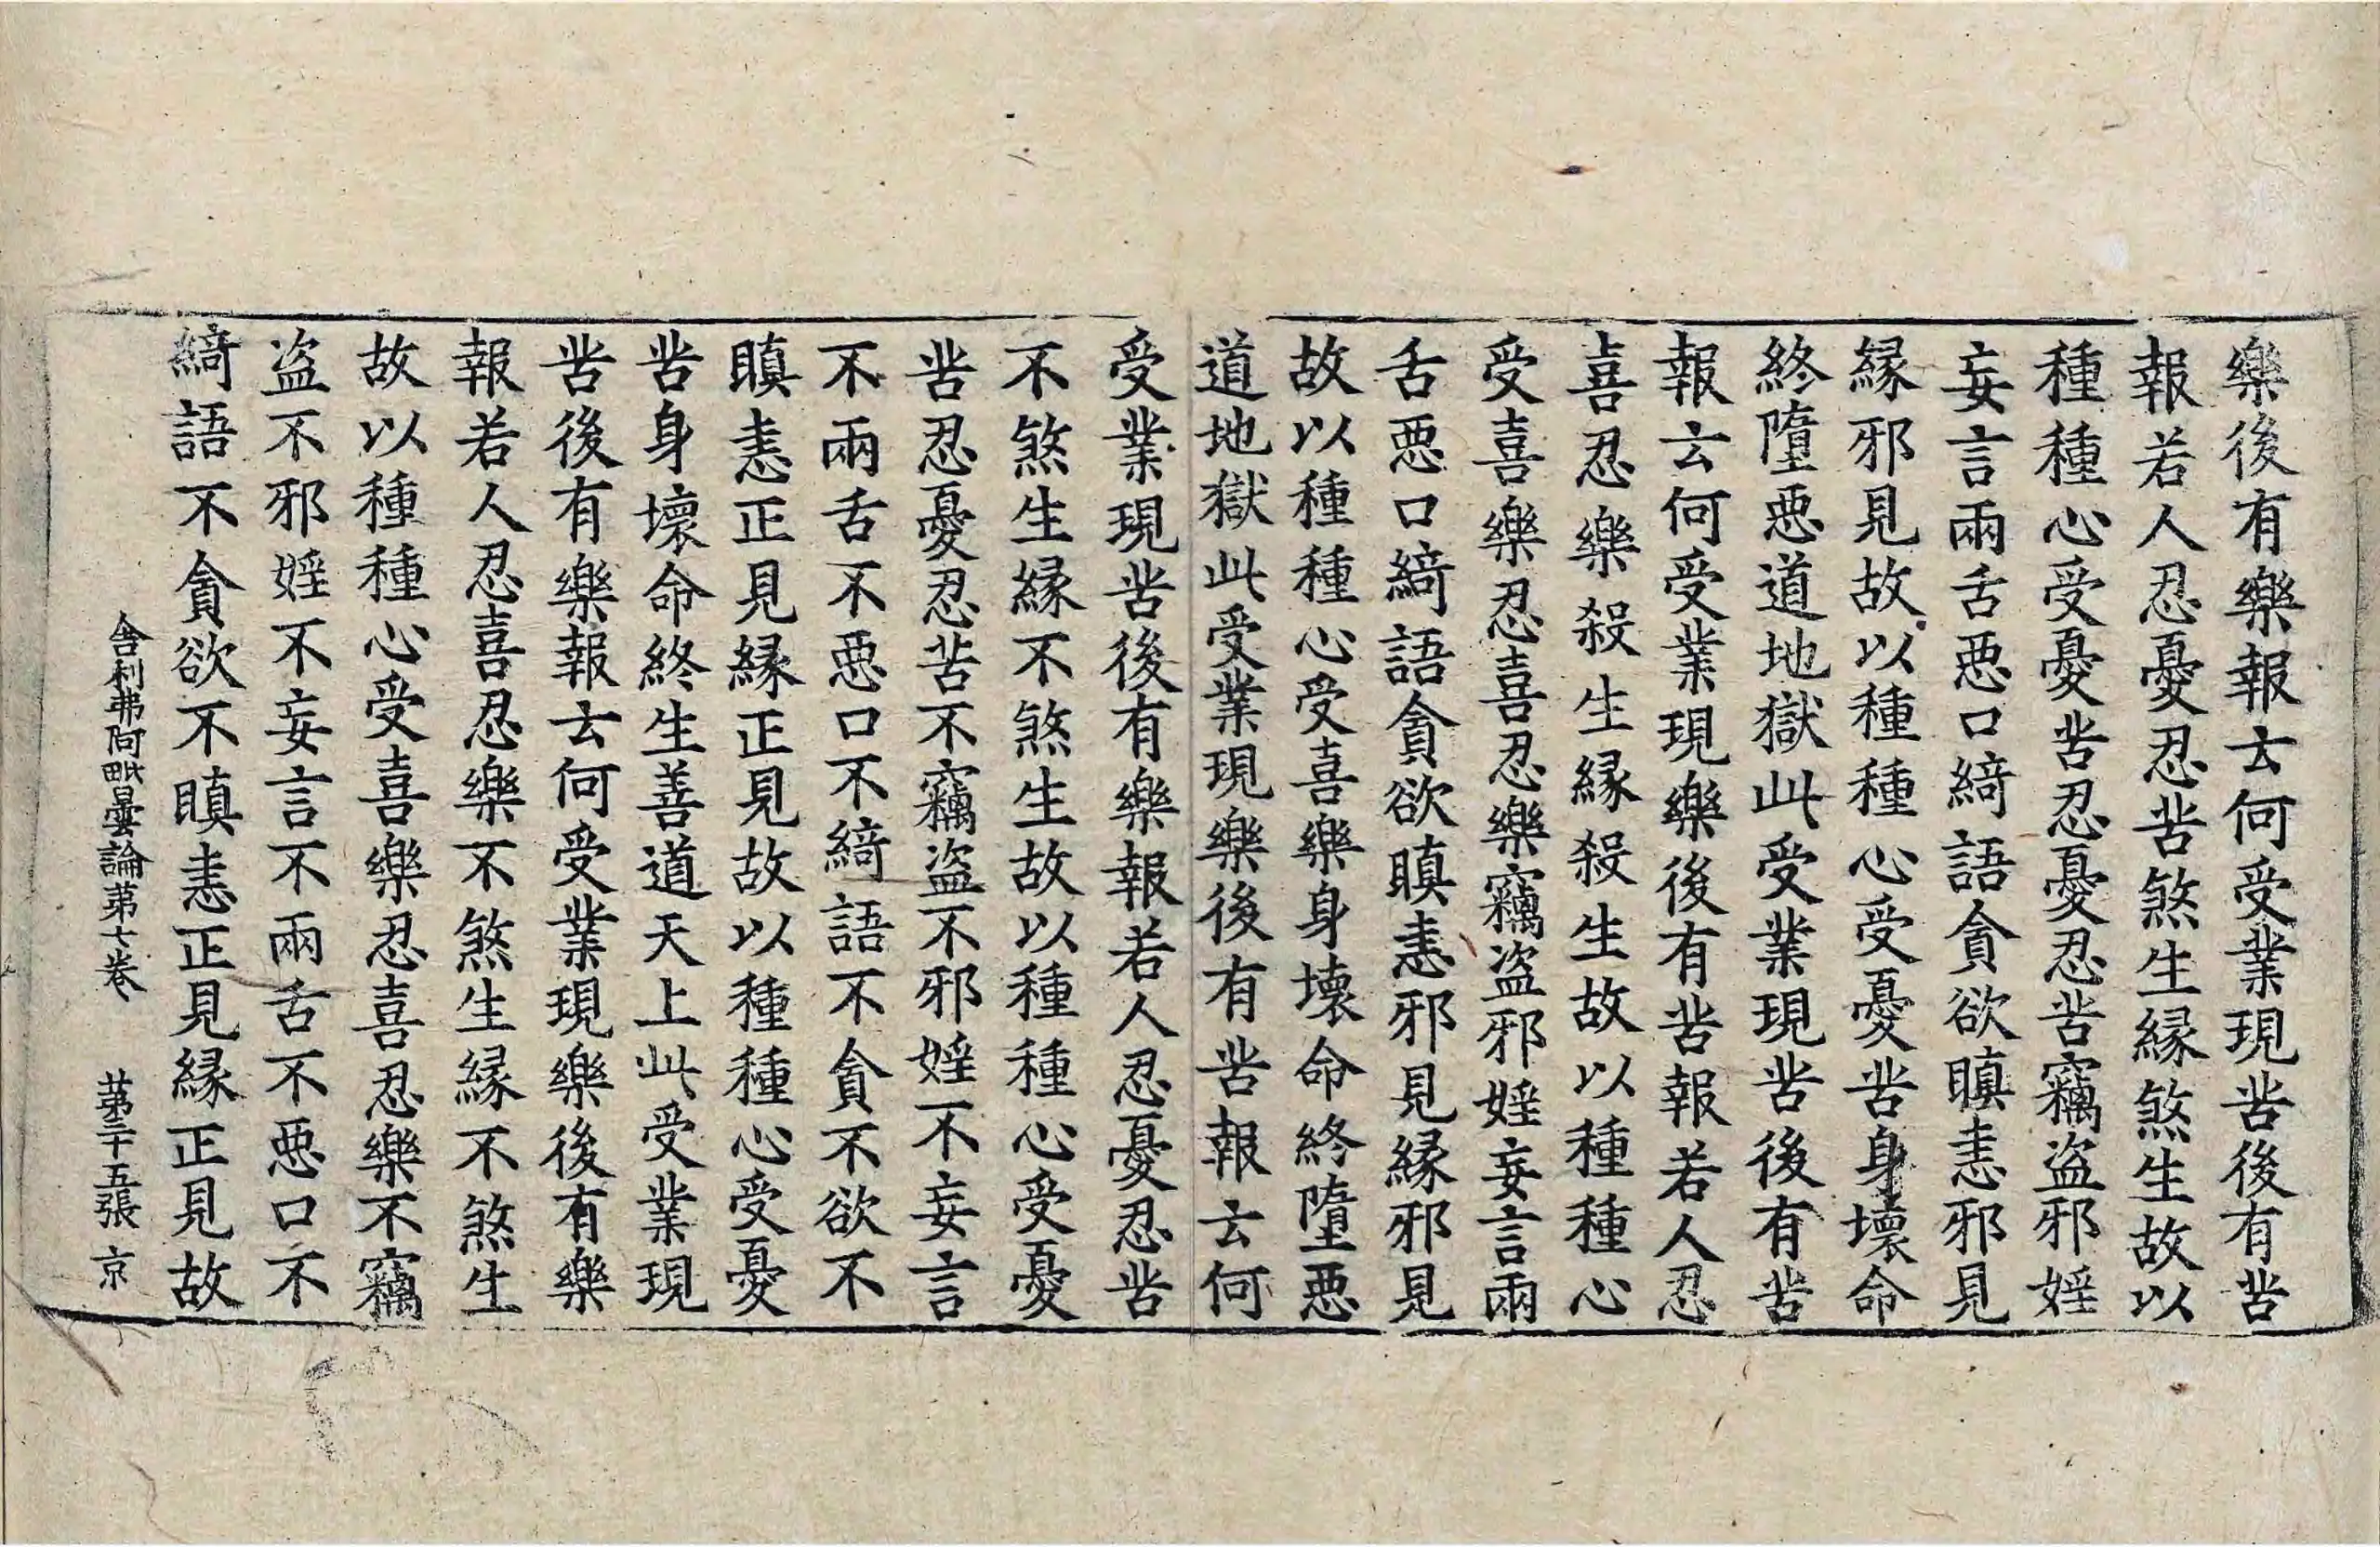 樂後有樂報云何受業現苦後有苦
報若人忍憂忍苦煞生縁煞生故以
種種心受憂苦忍憂忍苦竊盜邪婬
妄言兩舌惡口綺語貪欲瞋恚邪見
縁邪見故以種種心受憂苦身壞命
終墮惡道地獄此受業現苦後有苦
報云何受業現樂後有苦報若人忍
喜忍樂殺生縁殺生故以種種心
受喜樂忍喜忍樂竊盜邪婬妄言兩
舌惡口綺語貪欲瞋恚邪見縁邪見
故以種種心受喜樂身壞命終墮惡
道地獄此受業現樂後有苦報云何
受業現苦後有樂報若人忍憂忍苦
不煞生縁不煞生故以種種心受憂
苦忍憂忍苦不竊盜不邪婬不妄言
不兩舌不惡口不綺語不貪不欲不
瞋恚正見縁正見故以種種心受憂
苦身壞命終生善道天上此受業現
苦後有樂報云何受業現樂後有樂
報若人忍喜忍樂不煞生縁不煞生
故以種種心受喜樂忍喜忍樂不竊
盜不邪婬不妄言不兩舌不惡口不
綺語不貪欲不瞋恚正見縁正見故
舎利弗阿毗曇論苐七卷 苐二十五張 京